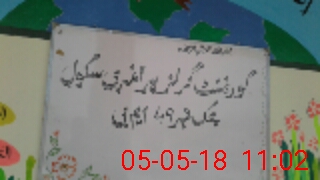 گورنمنٹ گرلز پرائمری سکول
چک نمبر 49 ایم بی
05-05-18 11:02